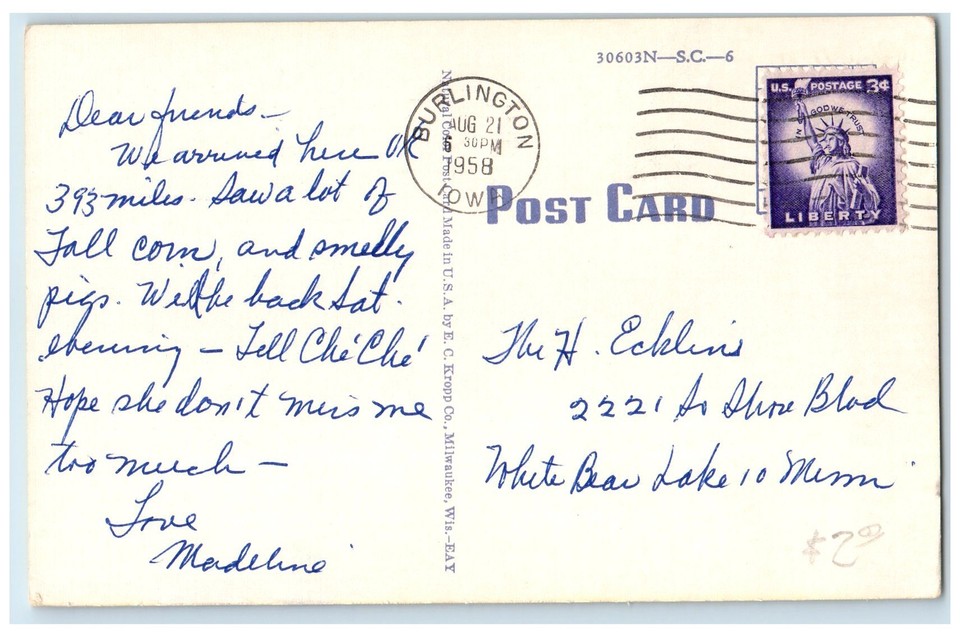 30603N—S.C.—6
Dear friends—
We arrived here OK
393 miles. Saw a lot of
Tall corn, and smelly
pigs. Will be back Sat.
evening — Tell Ché Ché
Hope she don't miss me
too much —
Love
Madeline
Natural Color Post Card Made in U.S.A. by E. C. Kropp Co., Milwaukee, Wis.—EAY
BURLINGTON
AUG 21
6 30 PM
1958
IOWA
POST CARD
U.S. POSTAGE 3¢
IN GOD WE TRUST
LIBERTY
The H. Ecklins
2221 So Shore Blvd
White Bear Lake 10 Minn
$2.00